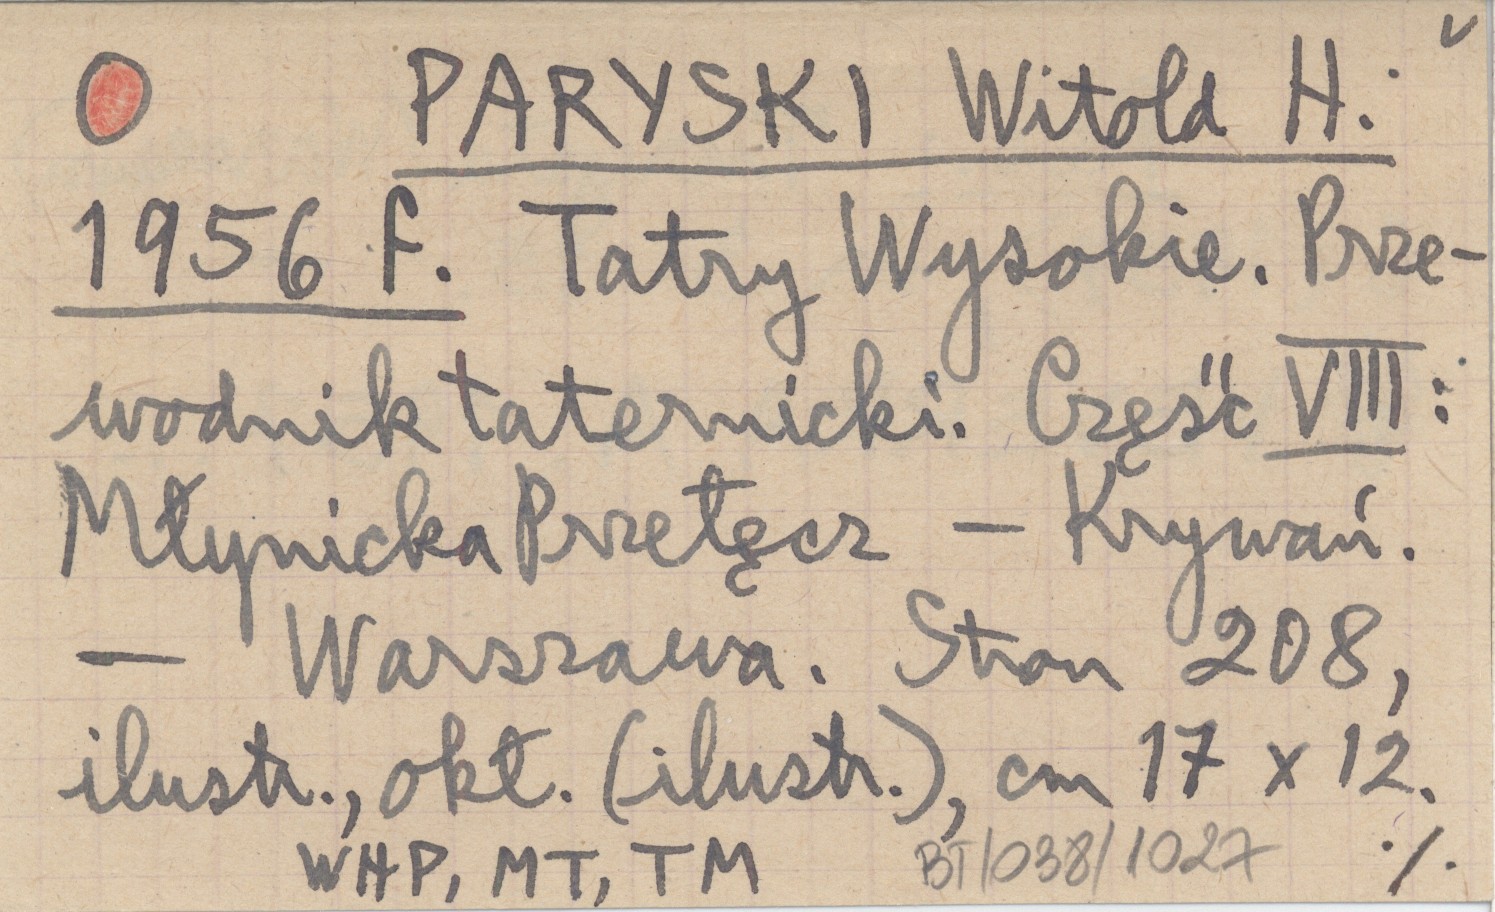 v
PARYSKI Witold H.:
1956 f. Tatry Wysokie. Prze-
wodnik taternicki. Część VIII:
Młynicka Przełęcz – Krywań.
– Warszawa. Stron 208,
ilustr., okł. (ilustr.), cm 17 x 12.
WHP, MT, TM BT/038/1027 ./.